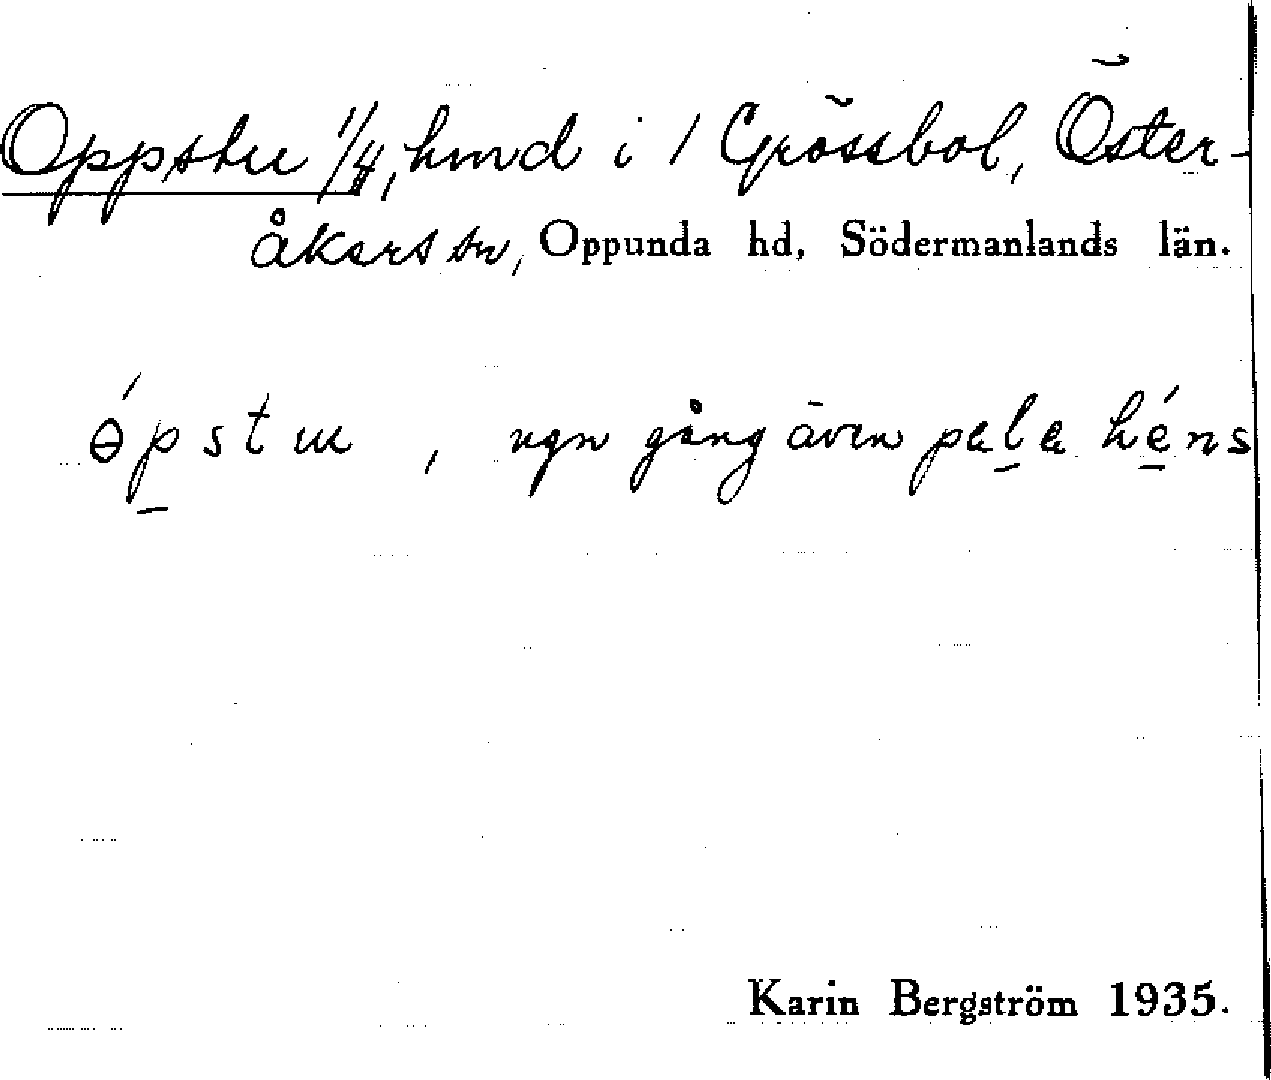 Oppstu 1/4, hmd i 1 Grössbol, Öster-
åkers sn, Oppunda hd, Södermanlands län.
ópstu, ngn gång även pele héns
Karin Bergström 1935.